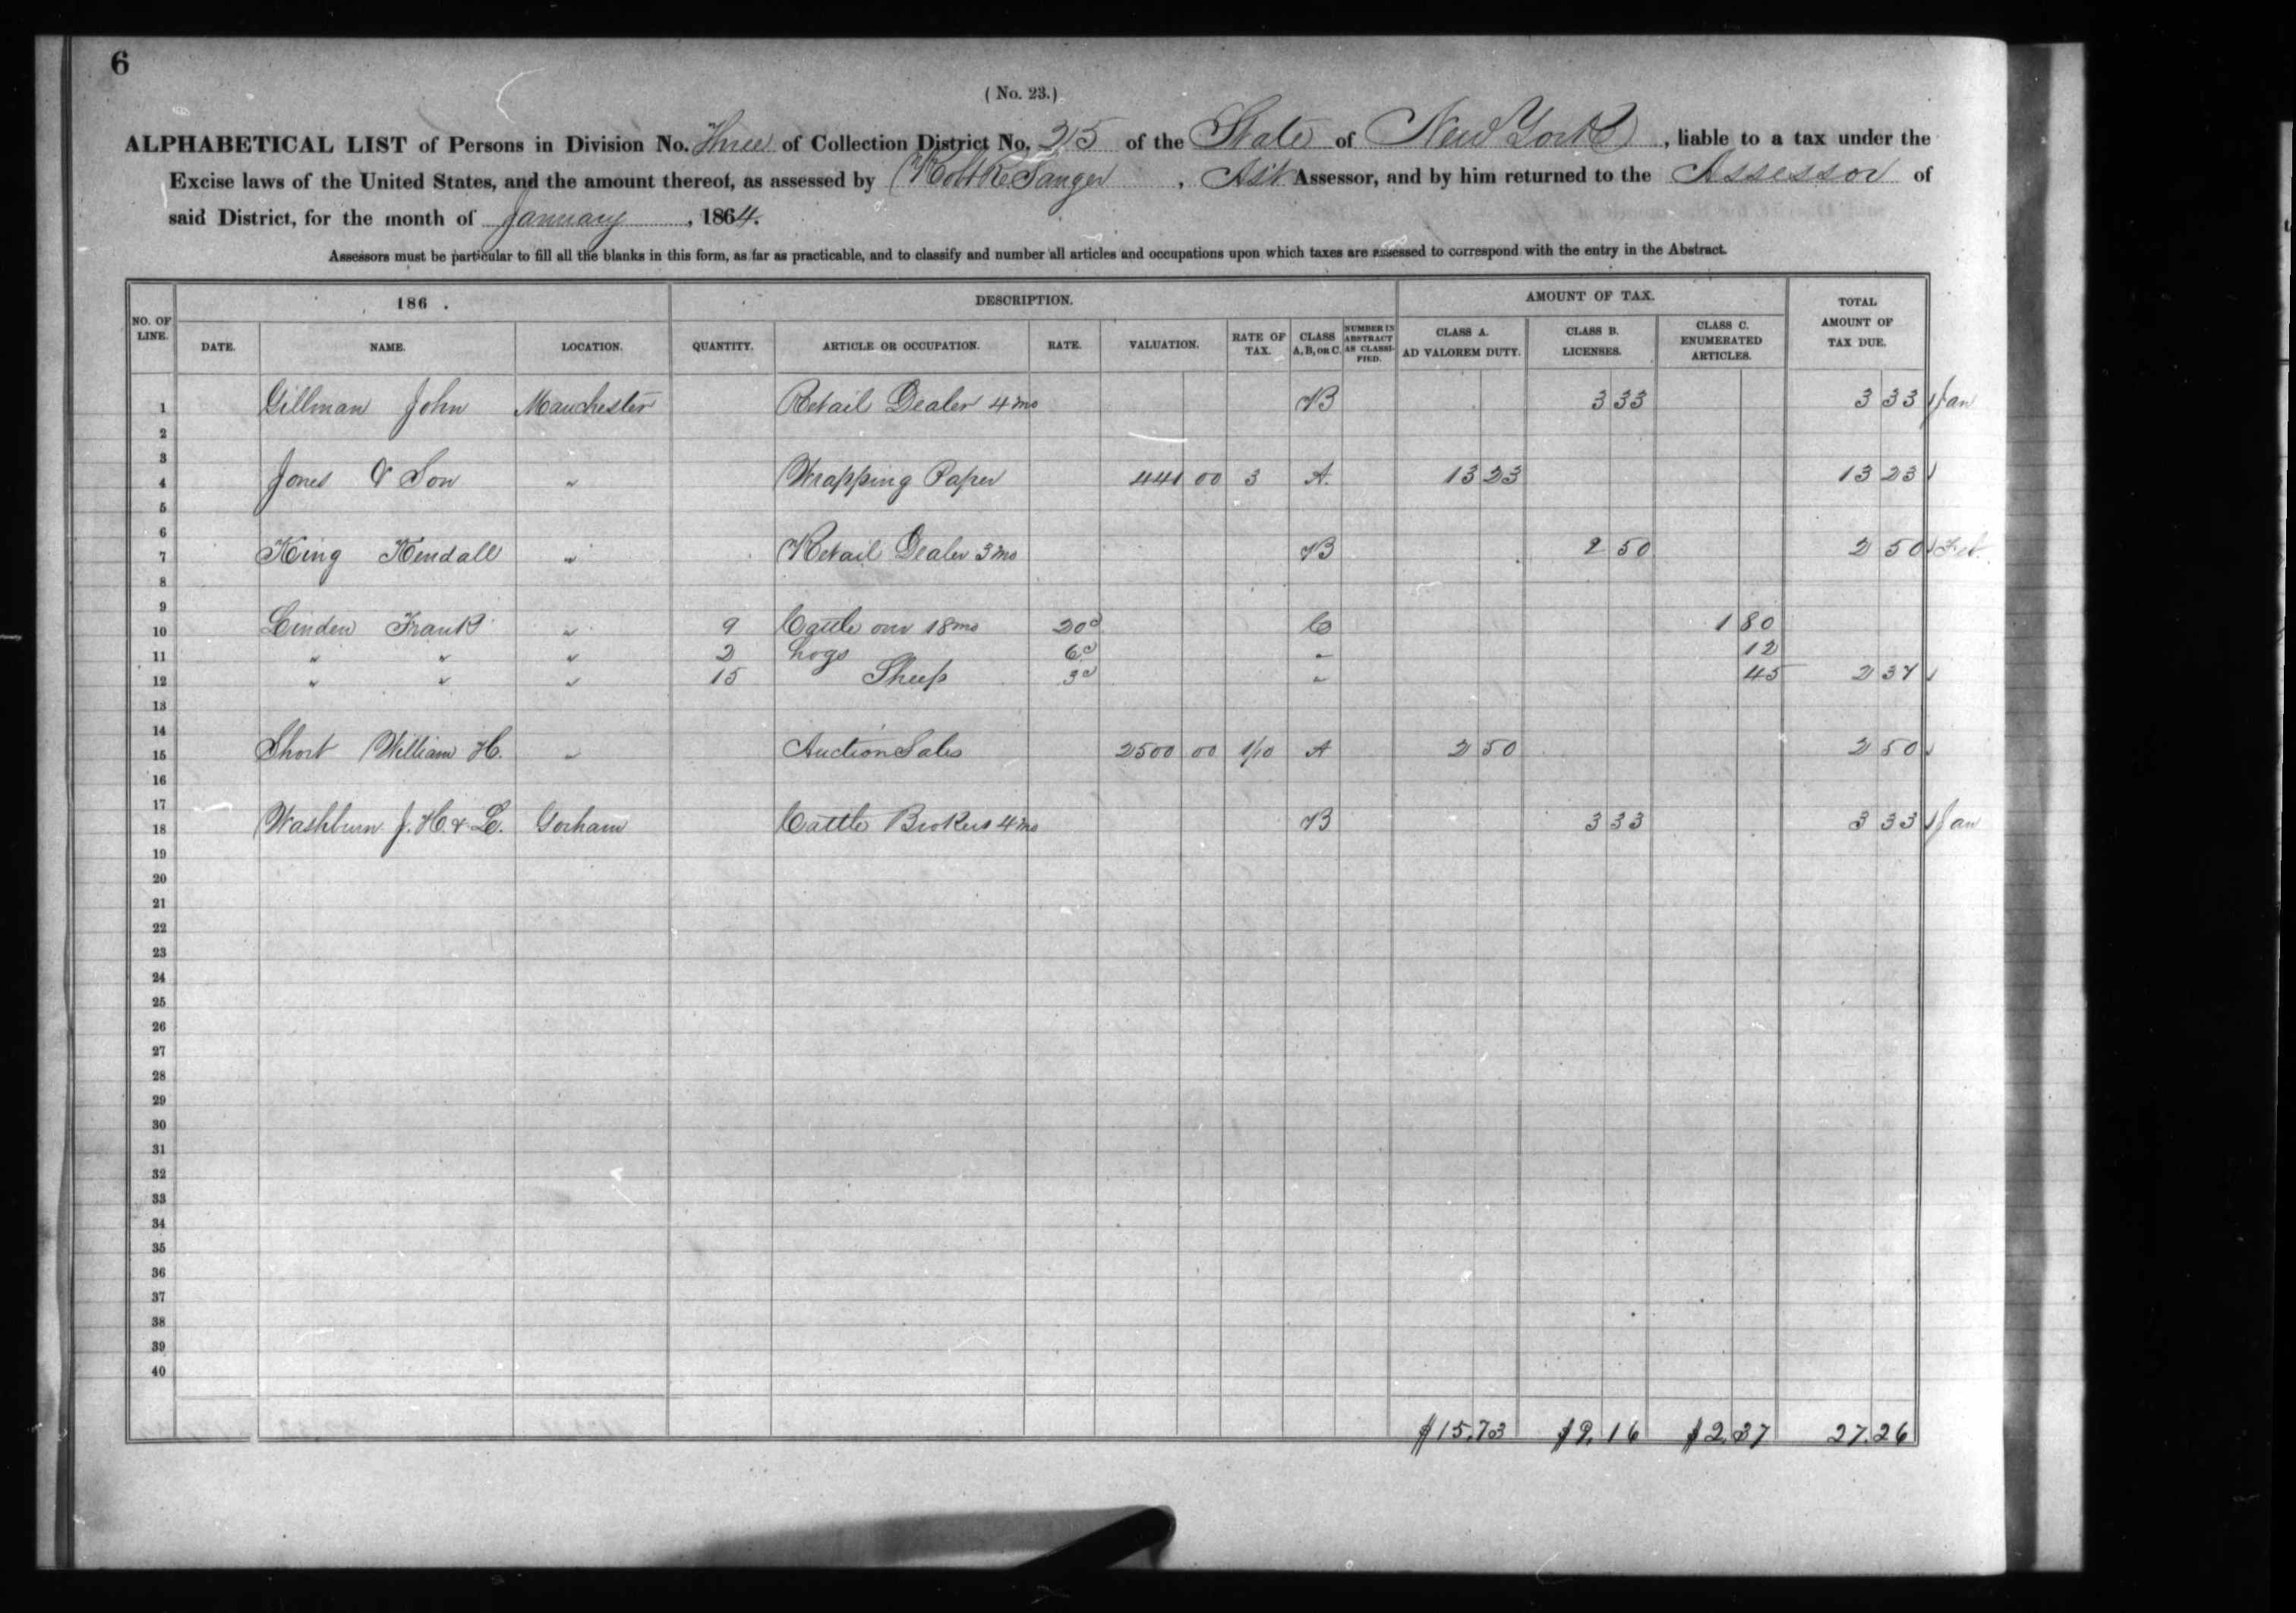 6
( No. 23.)
ALPHABETICAL LIST of Persons in Division No. Three of Collection District No. 25 of the State of New York, liable to a tax under the
Excise laws of the United States, and the amount thereof, as assessed by Sanger, Ast Assessor, and by him returned to the Assessor of
said District, for the month of January, 1864.
Assessors must be particular to fill all the blanks in this form, as far as practicable, and to classify and number all articles and occupations upon which taxes are assessed to correspond with the entry in the Abstract.
NO. OF LINE. 186 . DESCRIPTION. AMOUNT OF TAX. TOTAL AMOUNT OF TAX DUE.
DATE. NAME. LOCATION. QUANTITY. ARTICLE OR OCCUPATION. RATE. VALUATION. RATE OF TAX. CLASS A, B, OR C. NUMBER IN ABSTRACT AS CLASSIFIED. CLASS A. AD VALOREM DUTY. CLASS B. LICENSES. CLASS C. ENUMERATED ARTICLES.
1 Gillman John Manchester Retail Dealer 4 mo B 3 33 3 33 Jan
2
3
4 Jones & Son " Wrapping Paper 441 00 3 A. 13 23 13 23
5
6
7 King Kendall " Retail Dealer 3 mo B 2 50 2 50 Feb.
8
9
10 Linden Frank " 9 Cattle over 18 mo 20c C 1 80
11 " " " 2 hogs 6c " 12
12 " " " 15 Sheep 3c " 45 2 37
13
14
15 Short William H. " Auction Sales 2500 00 1/10 A 2 50 2 50
16
17
18 Washburn J. H. & L. Gorham Cattle Brokers 4 mo B 3 33 3 33 Jan
19
20
21
22
23
24
25
26
27
28
29
30
31
32
33
34
35
36
37
38
39
40
$15,73 $9,16 $2,37 27,26